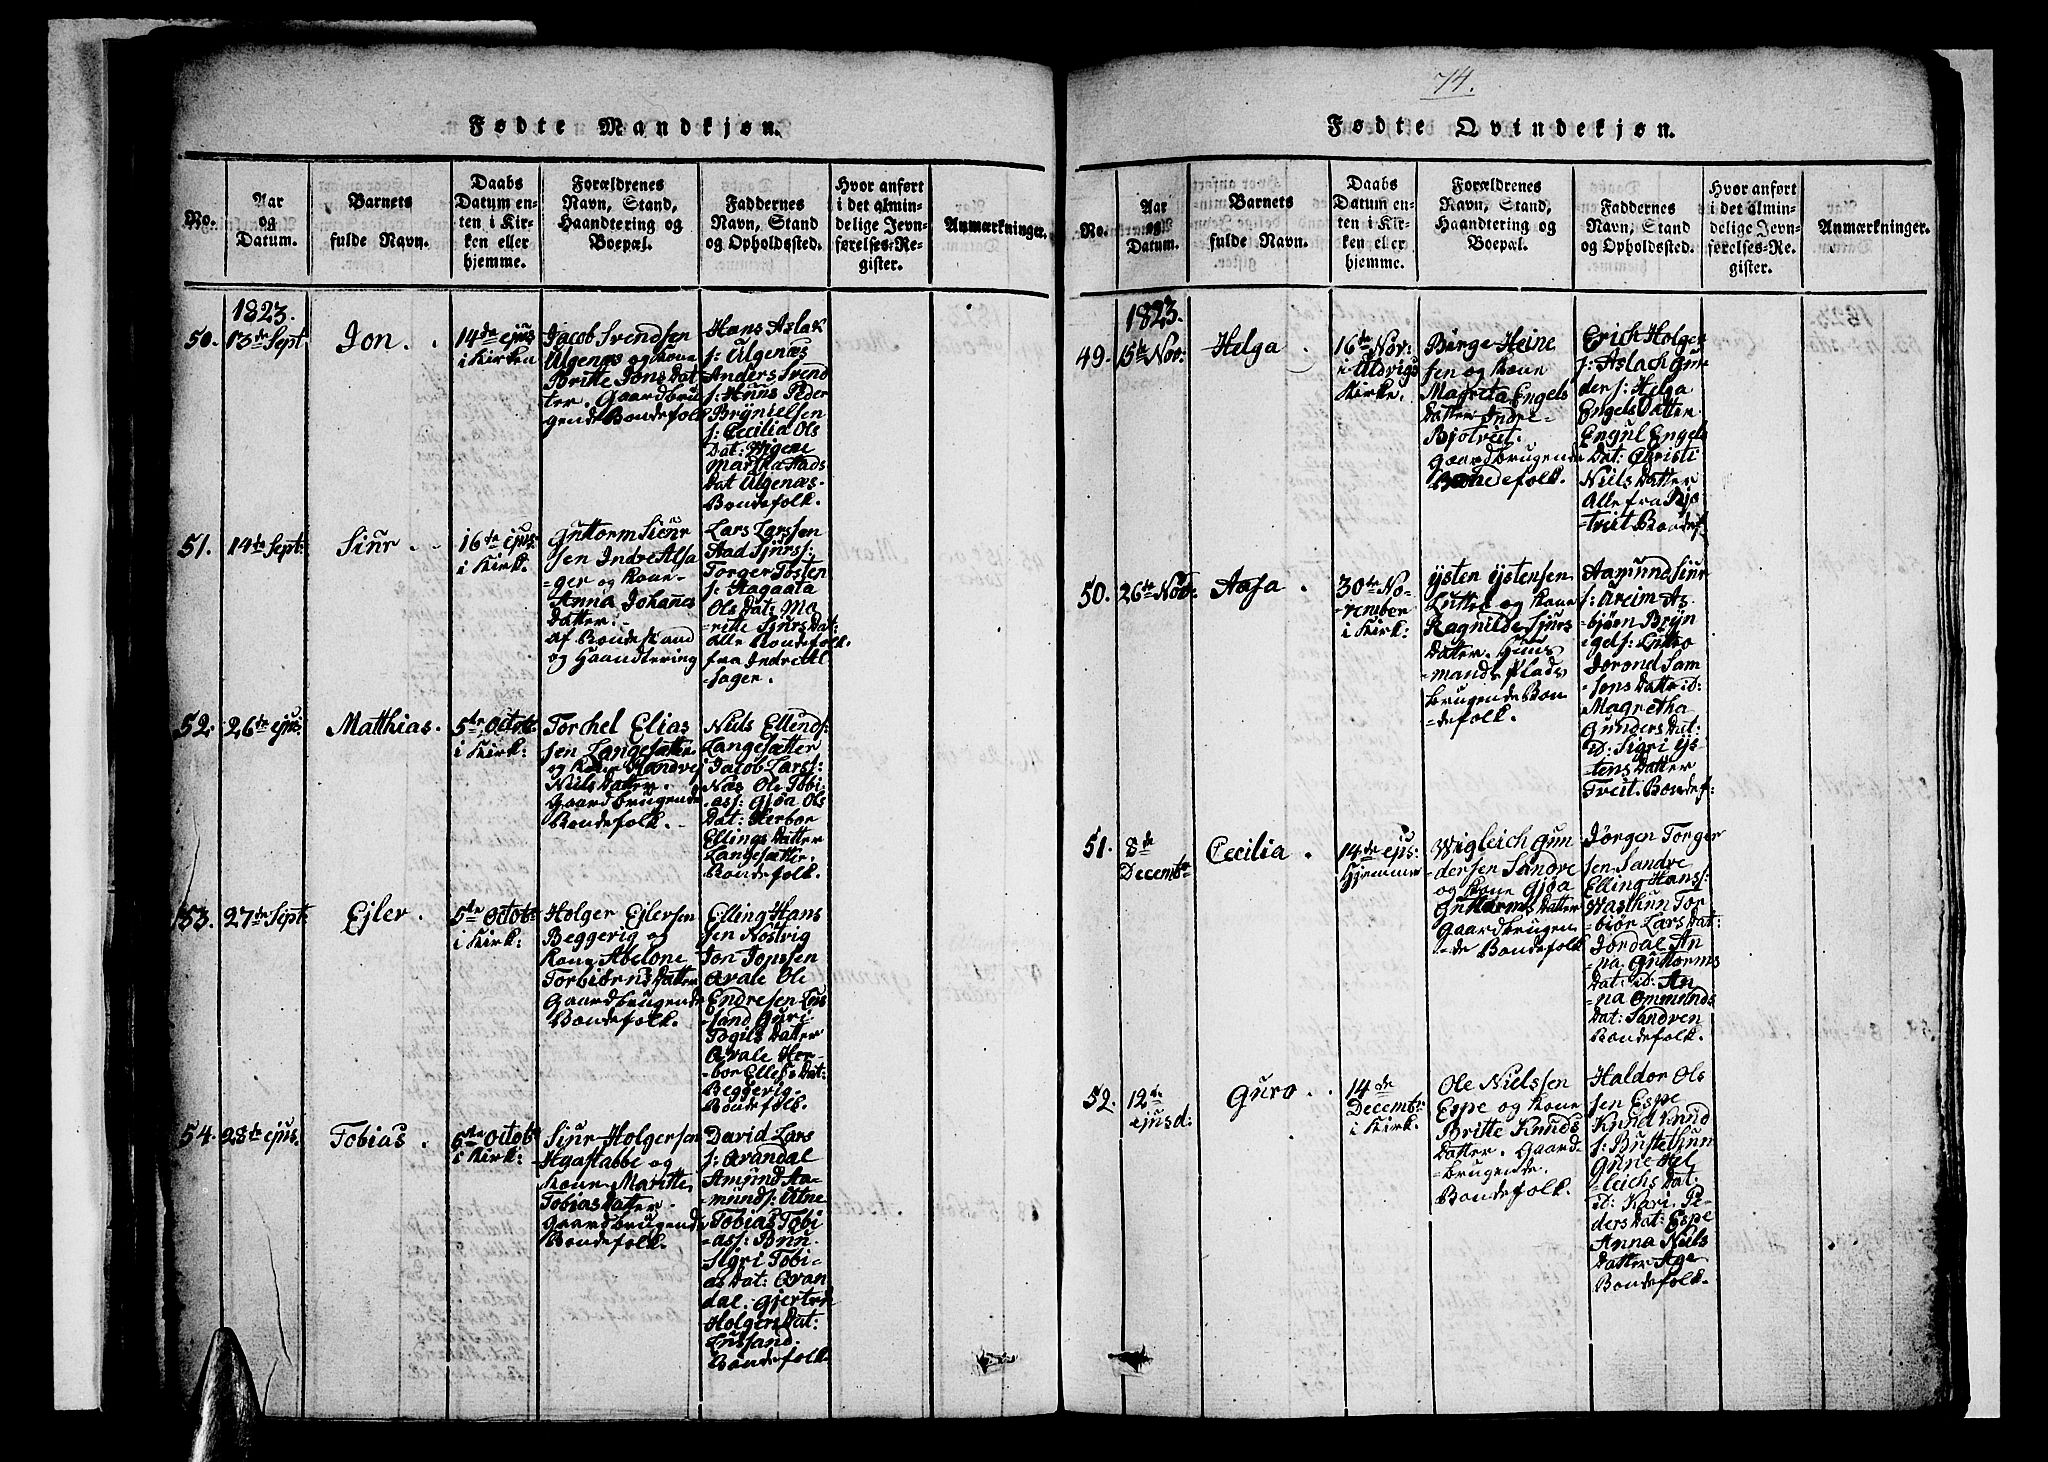 74.
Fødte Mandkjøn.
No.
Aar
og
Datum.
Barnets
fulde Navn.
Daabs
Datum en-
ten i Kir-
ken eller
hjemme.
Forældrenes
Navn, Stand,
Haandtering og
Boepæl.
Faddernes
Navn, Stand
og Opholdssted.
Hvor anført
i det almin-
delige Jevn-
førelses-Re-
gister.
Anmærkninger.
1823.
50.
13de Sept
Jon.
14de ejus
i Kirken
Jacob Svendsen
Ulgenæs og Kone
Britte Jons Dat
ter. Gaardbru
gende Bondefolk
Hans Aslak
s: Ulgenæs
Anders Svend
s: Hnns Peder
Brynielsen
s: Cecilia Ols
Dat: Vigene
Martha Aads
Dat Ulgenæs-
Bondefolk.
51.
14de Sept:
Siur
16de ejus:
i Kirk:
Guttorm Siur
sen Indre Alsa
-ger og Kone-
Anna Johañes
Datter.-
af Bondestand
og Haandtering
Lars Larssen
Aad Sjurs s:
Torger Tosten
s: Aagaata
Ols Dat: Ma
-ritte Sjurs Dat:
alle Bondefolk
fra Indre Al
-sager.
52.
26de ejus:
Matthias.
5te Octob:
i Kirk:
Torchel Elias
sen Langesætter
og Kone Randvei
Niels Datter.
Gaardbrugende
Bondefolk.-
Niels Ellends:
Langesætter
Jacob Lars s:
Næs Ole Tobi
-as s: Gjøa Ols
Dat: Herbor
Ellings Datter
Langesætter.
Bondefolk.
53.
27de Sept:
Ejler.
5te Octob:
i Kirk:
Holger Ejlersen
Beggerig og
Kone Abelone
Torbiørns Datter
Gaardbrugende
Bondefolk.
Elling Hans
sen Nostvig
Jon Jonssen
Qvale Ole
Endresen Lus
-sand Guri
Togils Datter
Qvale Her-
bor Ellefs Dat:
Beggerig.
Bondefolk.
54.
28de ejus.
Tobias.
5te Octob:
i Kirk:
Siur Holgersen
Haastabbe og
Kone Maritte
Tobias Datter.
Gaardbrugende
Bondefolk.
David Lars
s: Qvandal
Amund Aa-
munds: Utne
Tobias Tobi
-as s: Bruu.
Sigri Tobi-
as Dat: Qvan
dal. Gjertrud
Holgers Dat:
Lussand.
Bondefolk
Fødte Qvindekjøn.
No.
Aar
og
Datum.
Barnets
fulde Navn.
Daabs
Datum en-
ten i Kir-
ken eller
hjemme.
Forældrenes
Navn, Stand,
Haandtering og
Boepæl.
Faddernes
Navn, Stand
og Opholdssted.
Hvor anført
i det almin-
delige Jevn-
førelses-Re-
gister.
Anmærkninger.
1823.
49.
15de Nov:
Helga.
16de Nov:
i Uldvigs
Kirke.
Børge Heine
sen og Kone
Magreta Engels
Datter Indre-
Bjotveit.
Gaardbrugende
Bondefolk.
Erich Holger
s: Aslach Gun
ders: Helga
Engels Datter
Engul Engels
Dat: Christi
Niels Datter
Alle fra Bjo
tveit Bondef.
50.
26de Nov:
Aasa.
30de No-
-vember
i Kirk:
Ysten Ystensen
Lutro og Kone
Ragnilde Sjurs
Datter. Huus
mands Plads
brugende Bon
-defolk.
Aamund Siur
s: Qveim As
biørn Bryn
igels: Luttro
Jorond Sam
-sons Datter id:
Magretha
Gunders Dat:
id: Sigri Ys-
-tens Datter
Tveit. Bondef:
51.
8de
Decembr
Cecilia.
14de ejus:
Hjemme
Wigleich Gun
dersen Sandve
og Kone Gjøa
Guttorms Datter
Gaardbrugen
-de Bondefolk
Jørgen Torger
sen Sandve
Elling Hans s:
Wasthun Tor
-biør Lars Dat:
Jordal An
-na Guttorms
Dat: id: An
-na Ommunds
Dat: Sandven
Bondefolk.
52.
12de
ejusd:
Guro.
14de
Decembr
i Kirk:
Ole Nielssen
Espe og Kone
Britte Knuds
Datter. Gaard-
-brugende.
Bondefolk.
Haldor Ols
sen Espe
Knud Knud
s: Bustethun
Gune Hel
-leichs Dat:
id: Kari Pe-
ders Dat: Espe
Anna Niels
Datter Age
Bondefolk.